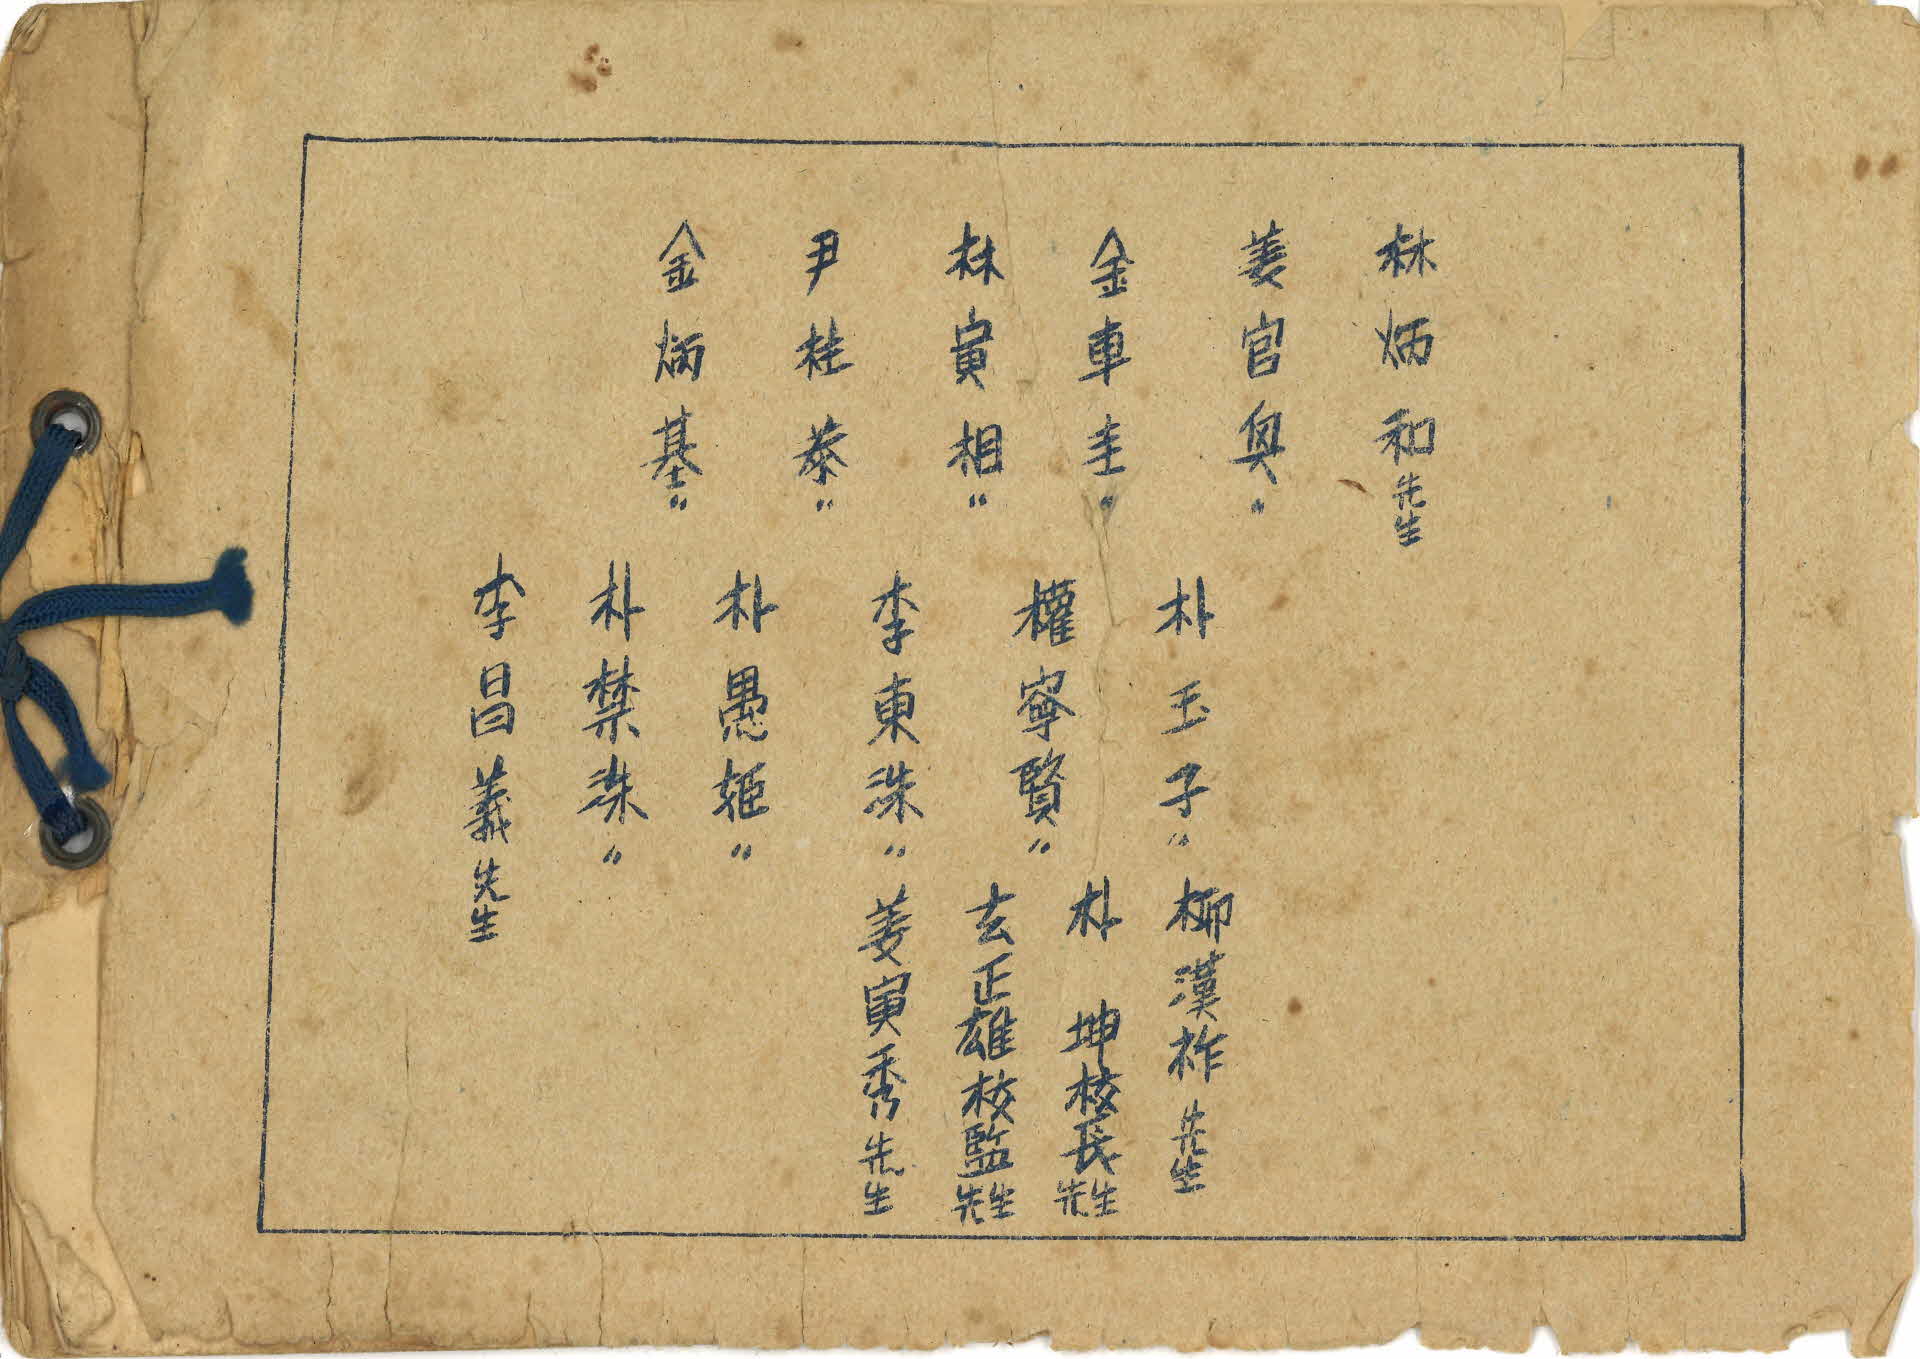 林炳和先生
姜官奐〃
金車圭〃
林寅相〃
尹桂泰〃
金炳基〃
朴玉子〃
權寧賢〃
李東洙〃
朴愚姬〃
朴禁洙〃
李昌義先生
柳漢祚先生
朴 坤校長先生
玄正雄校監先生
姜寅秀先生